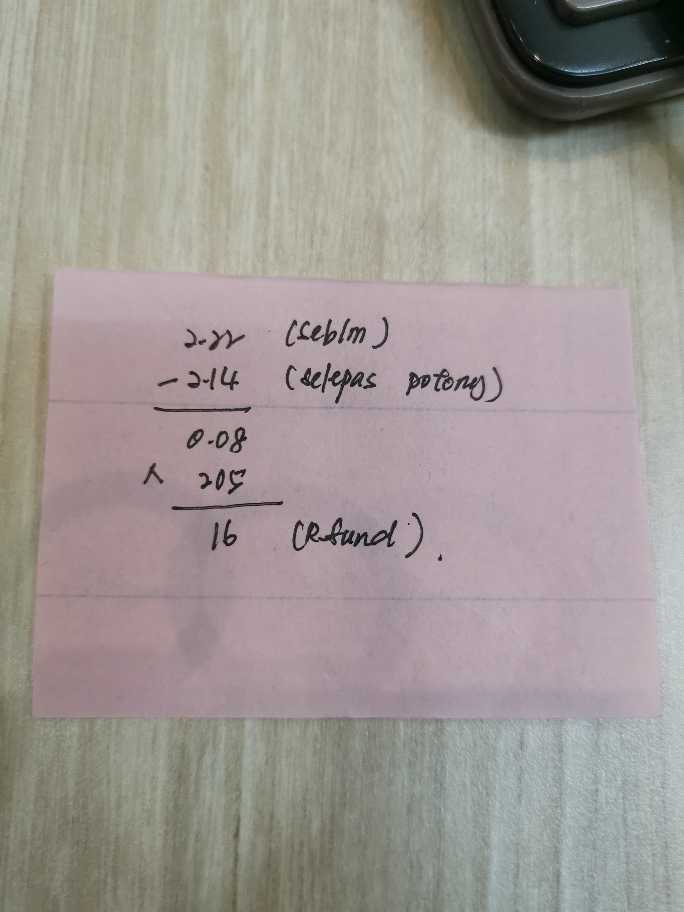 2.22 (seblm)
- 2.14 (selepas potong)
0.08
x 205
16 (Refund).